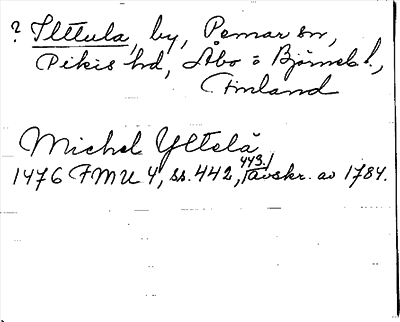 ? Ylttula, by, Pemar sn,
Pikis hd, Åbo o Björneb. l.,
Finland
Michel Ylttelä
1476 FMU 4, ss. 442, 443. /avskr. av 1784.